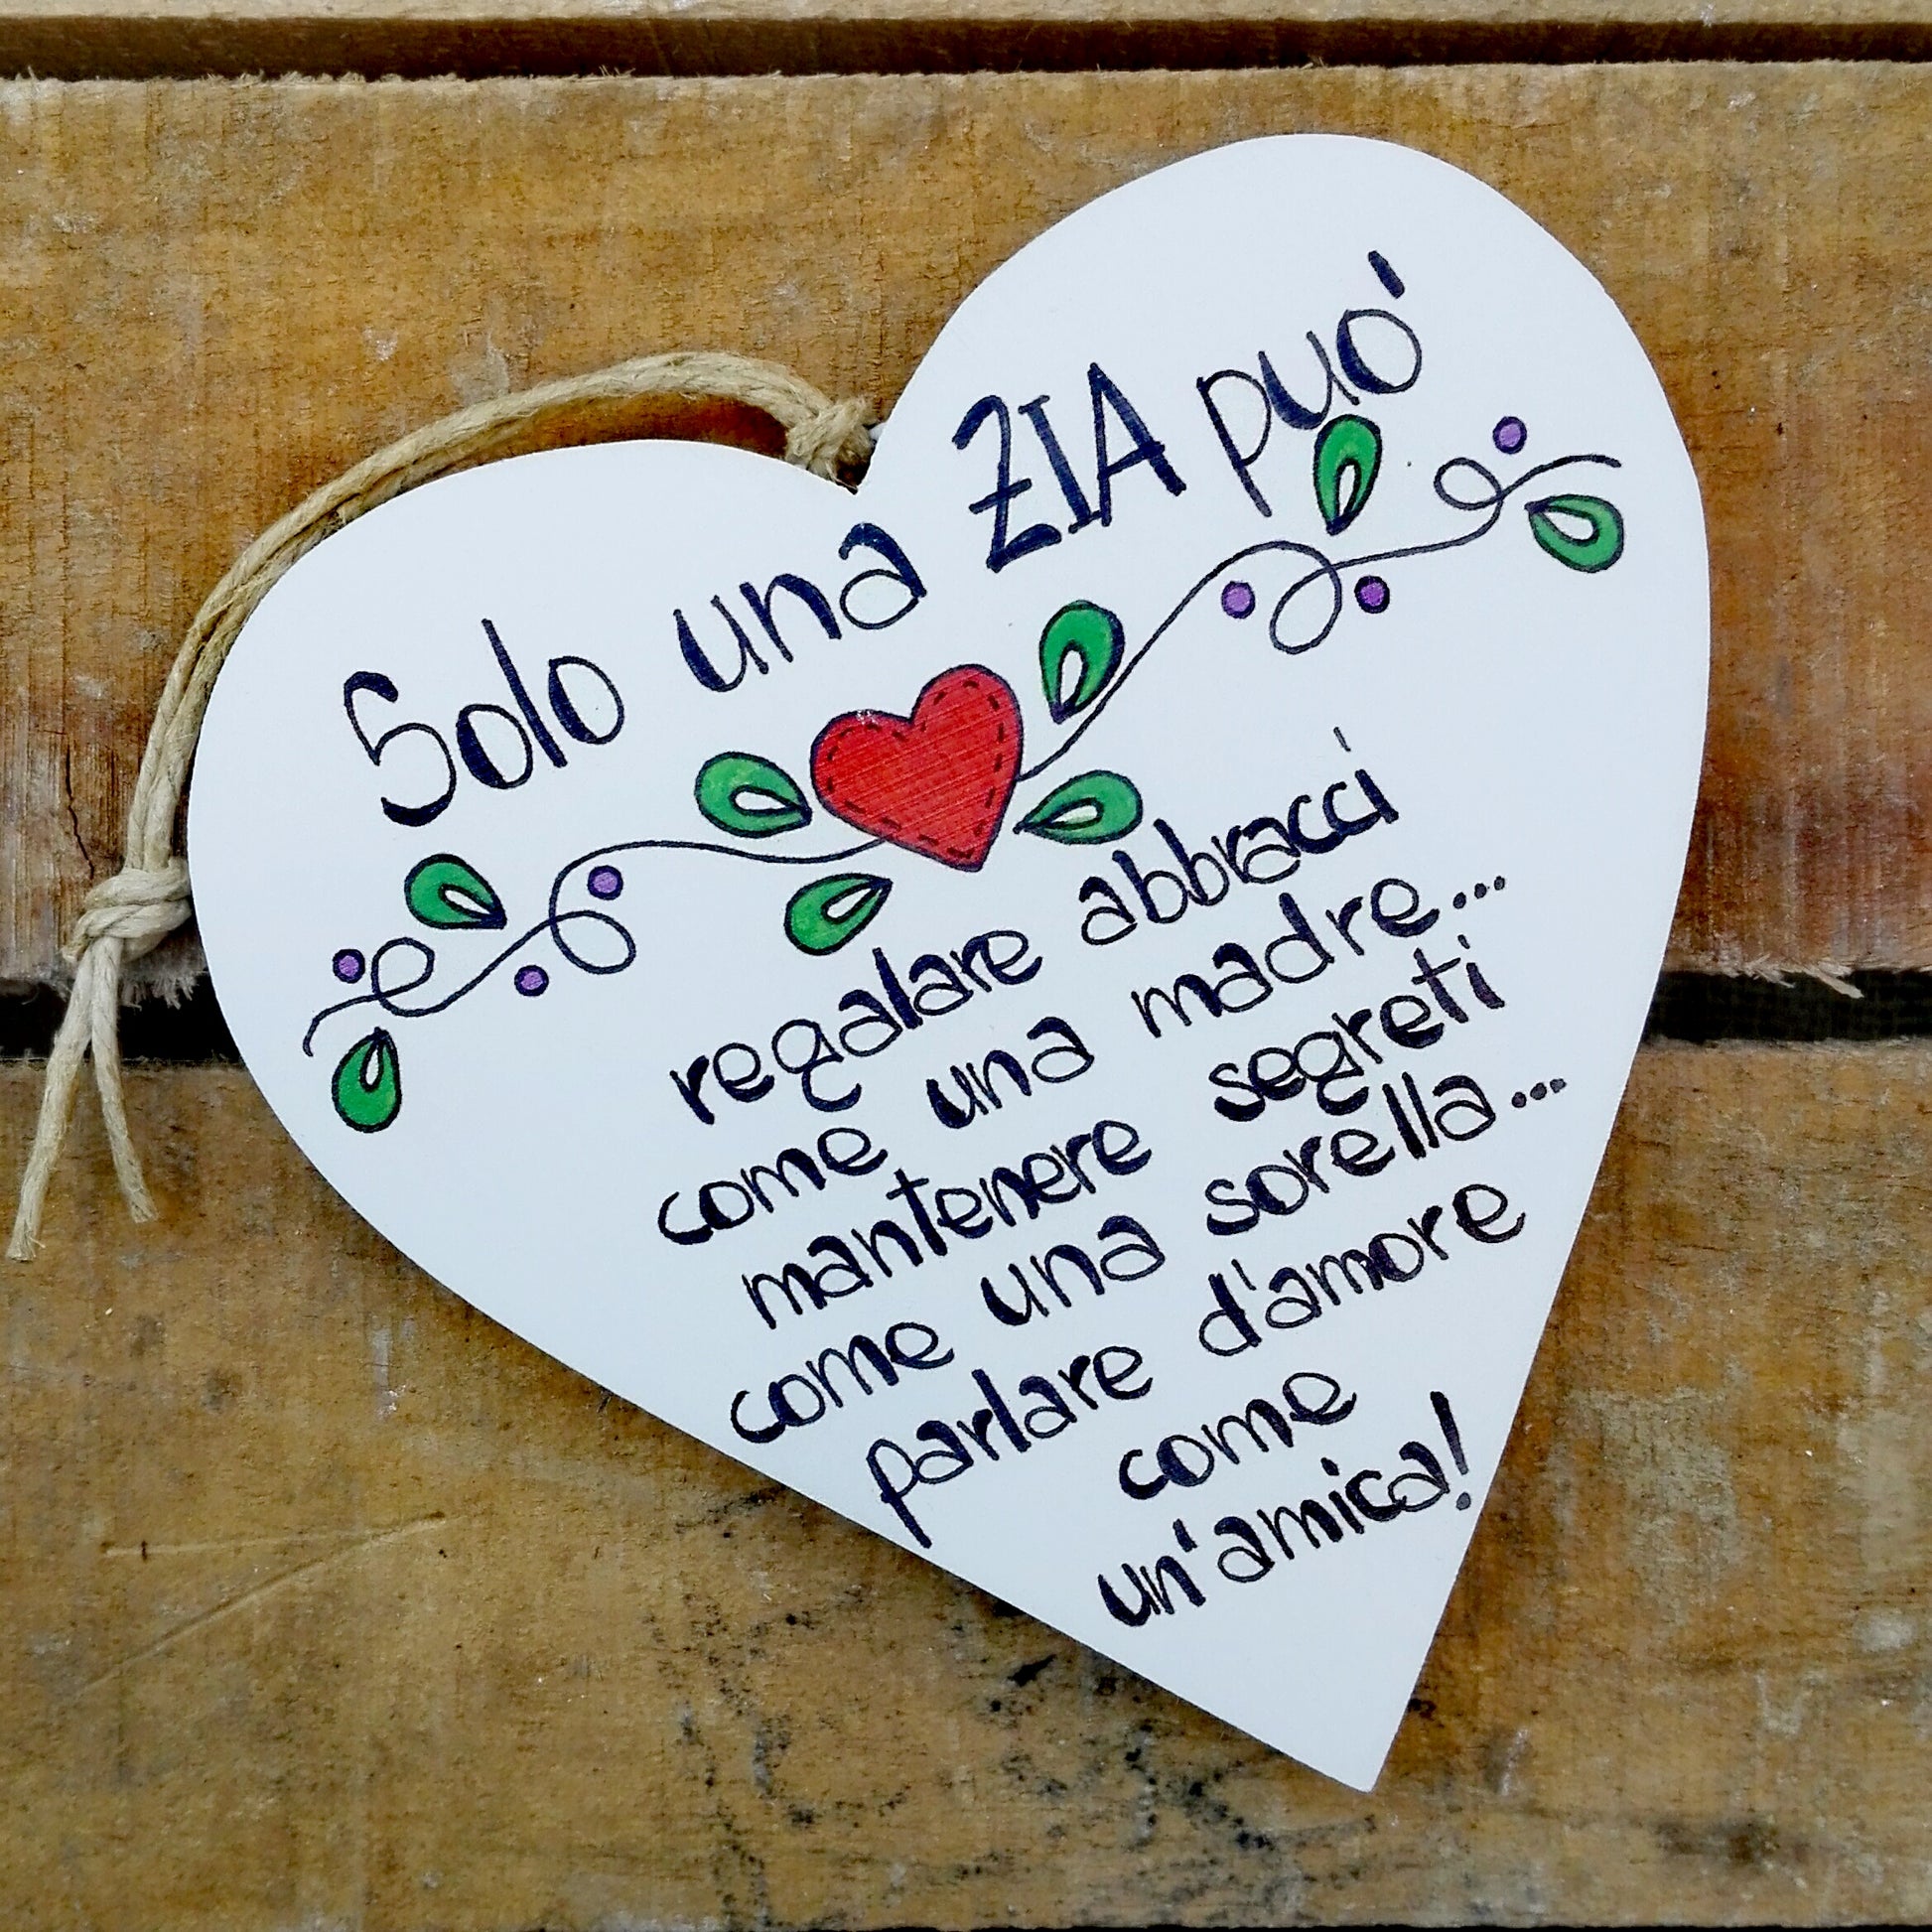 Solo una ZIA puo'
regalare abbracci
come una madre...
mantenere segreti
come una sorella...
parlare d'amore
come
un'amica!